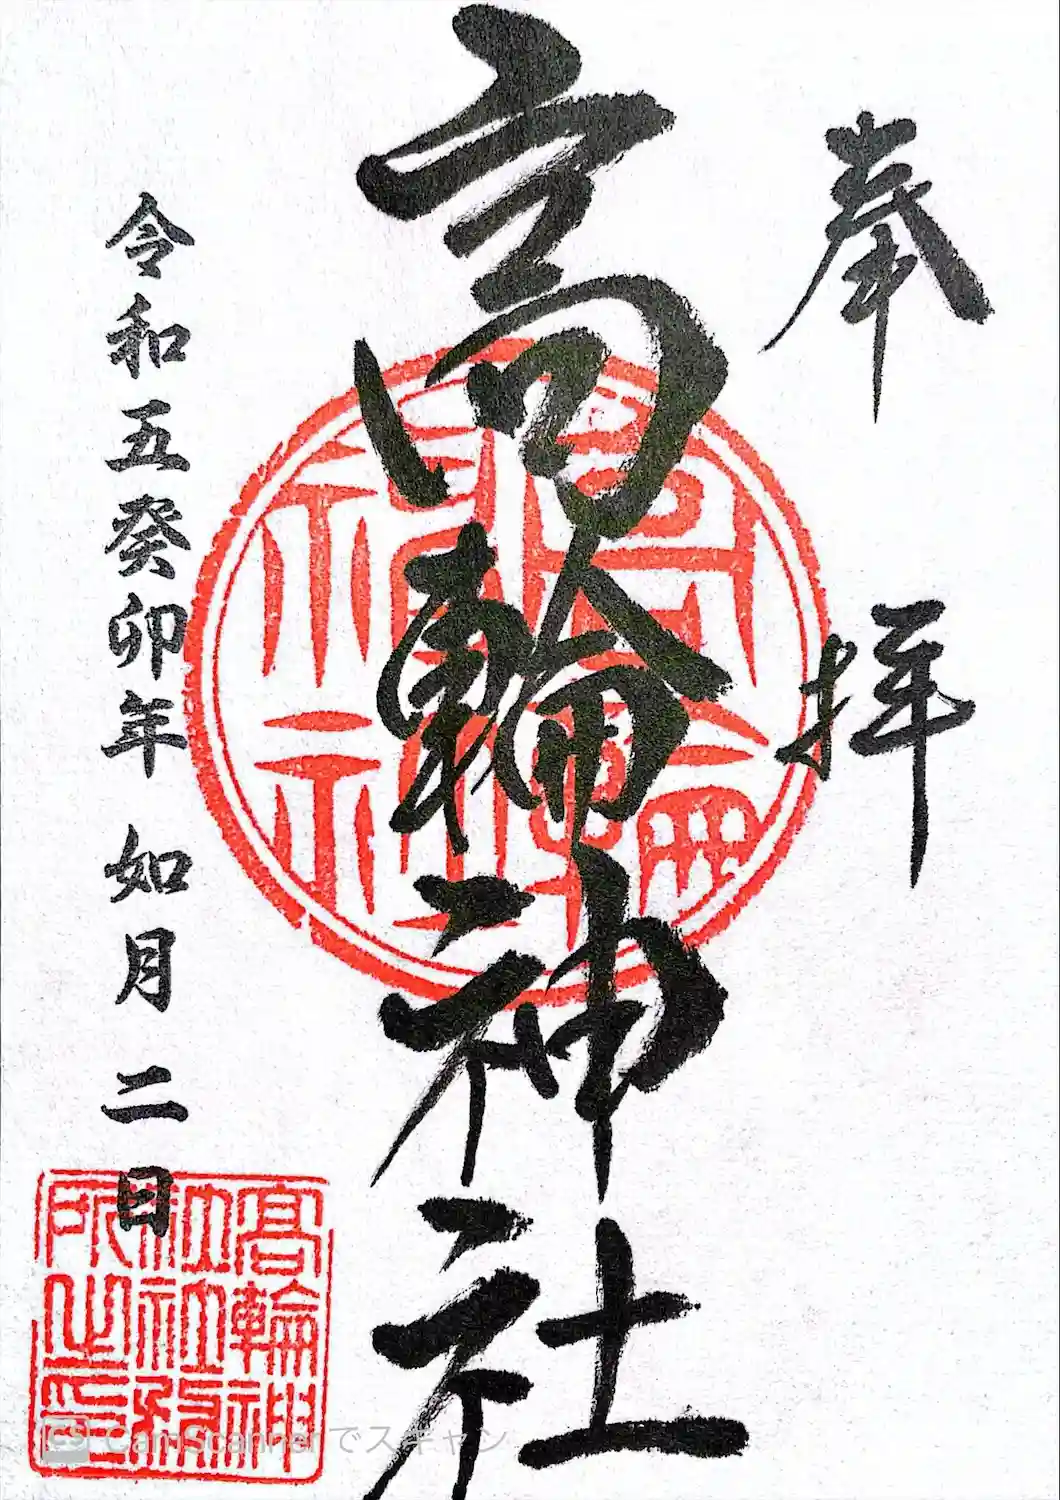 奉拝
高輪神社
令和五癸卯年 如月二日
高輪神社
高輪神社社務所之印
CS CamScannerでスキャン